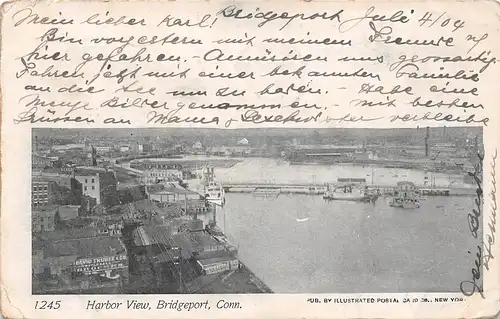 Mein lieber Karl! Bridgeport Juli 4/04
Bin vorgestern mit meinem Freunde
hier gefahren. - Amüsiren uns grossartig.
Fahren jetzt mit einer bekannten Familie
an die See um zu baden. - Habe eine
Menge Bilder genommen. - mit besten
Grüssen an Mama & verbleibe
Dein
1245 Harbor View, Bridgeport, Conn.
PUB. BY ILLUSTRATED POSTAL CARD CO., NEW YORK